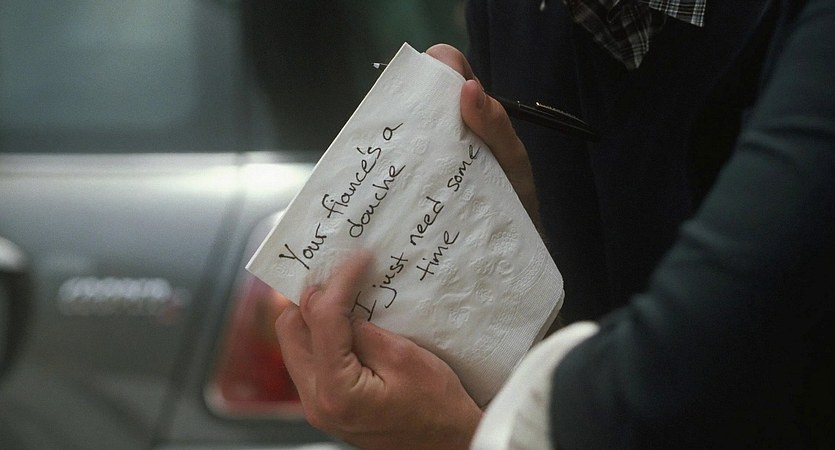 Your fiancé's a
douche
I just need some
time